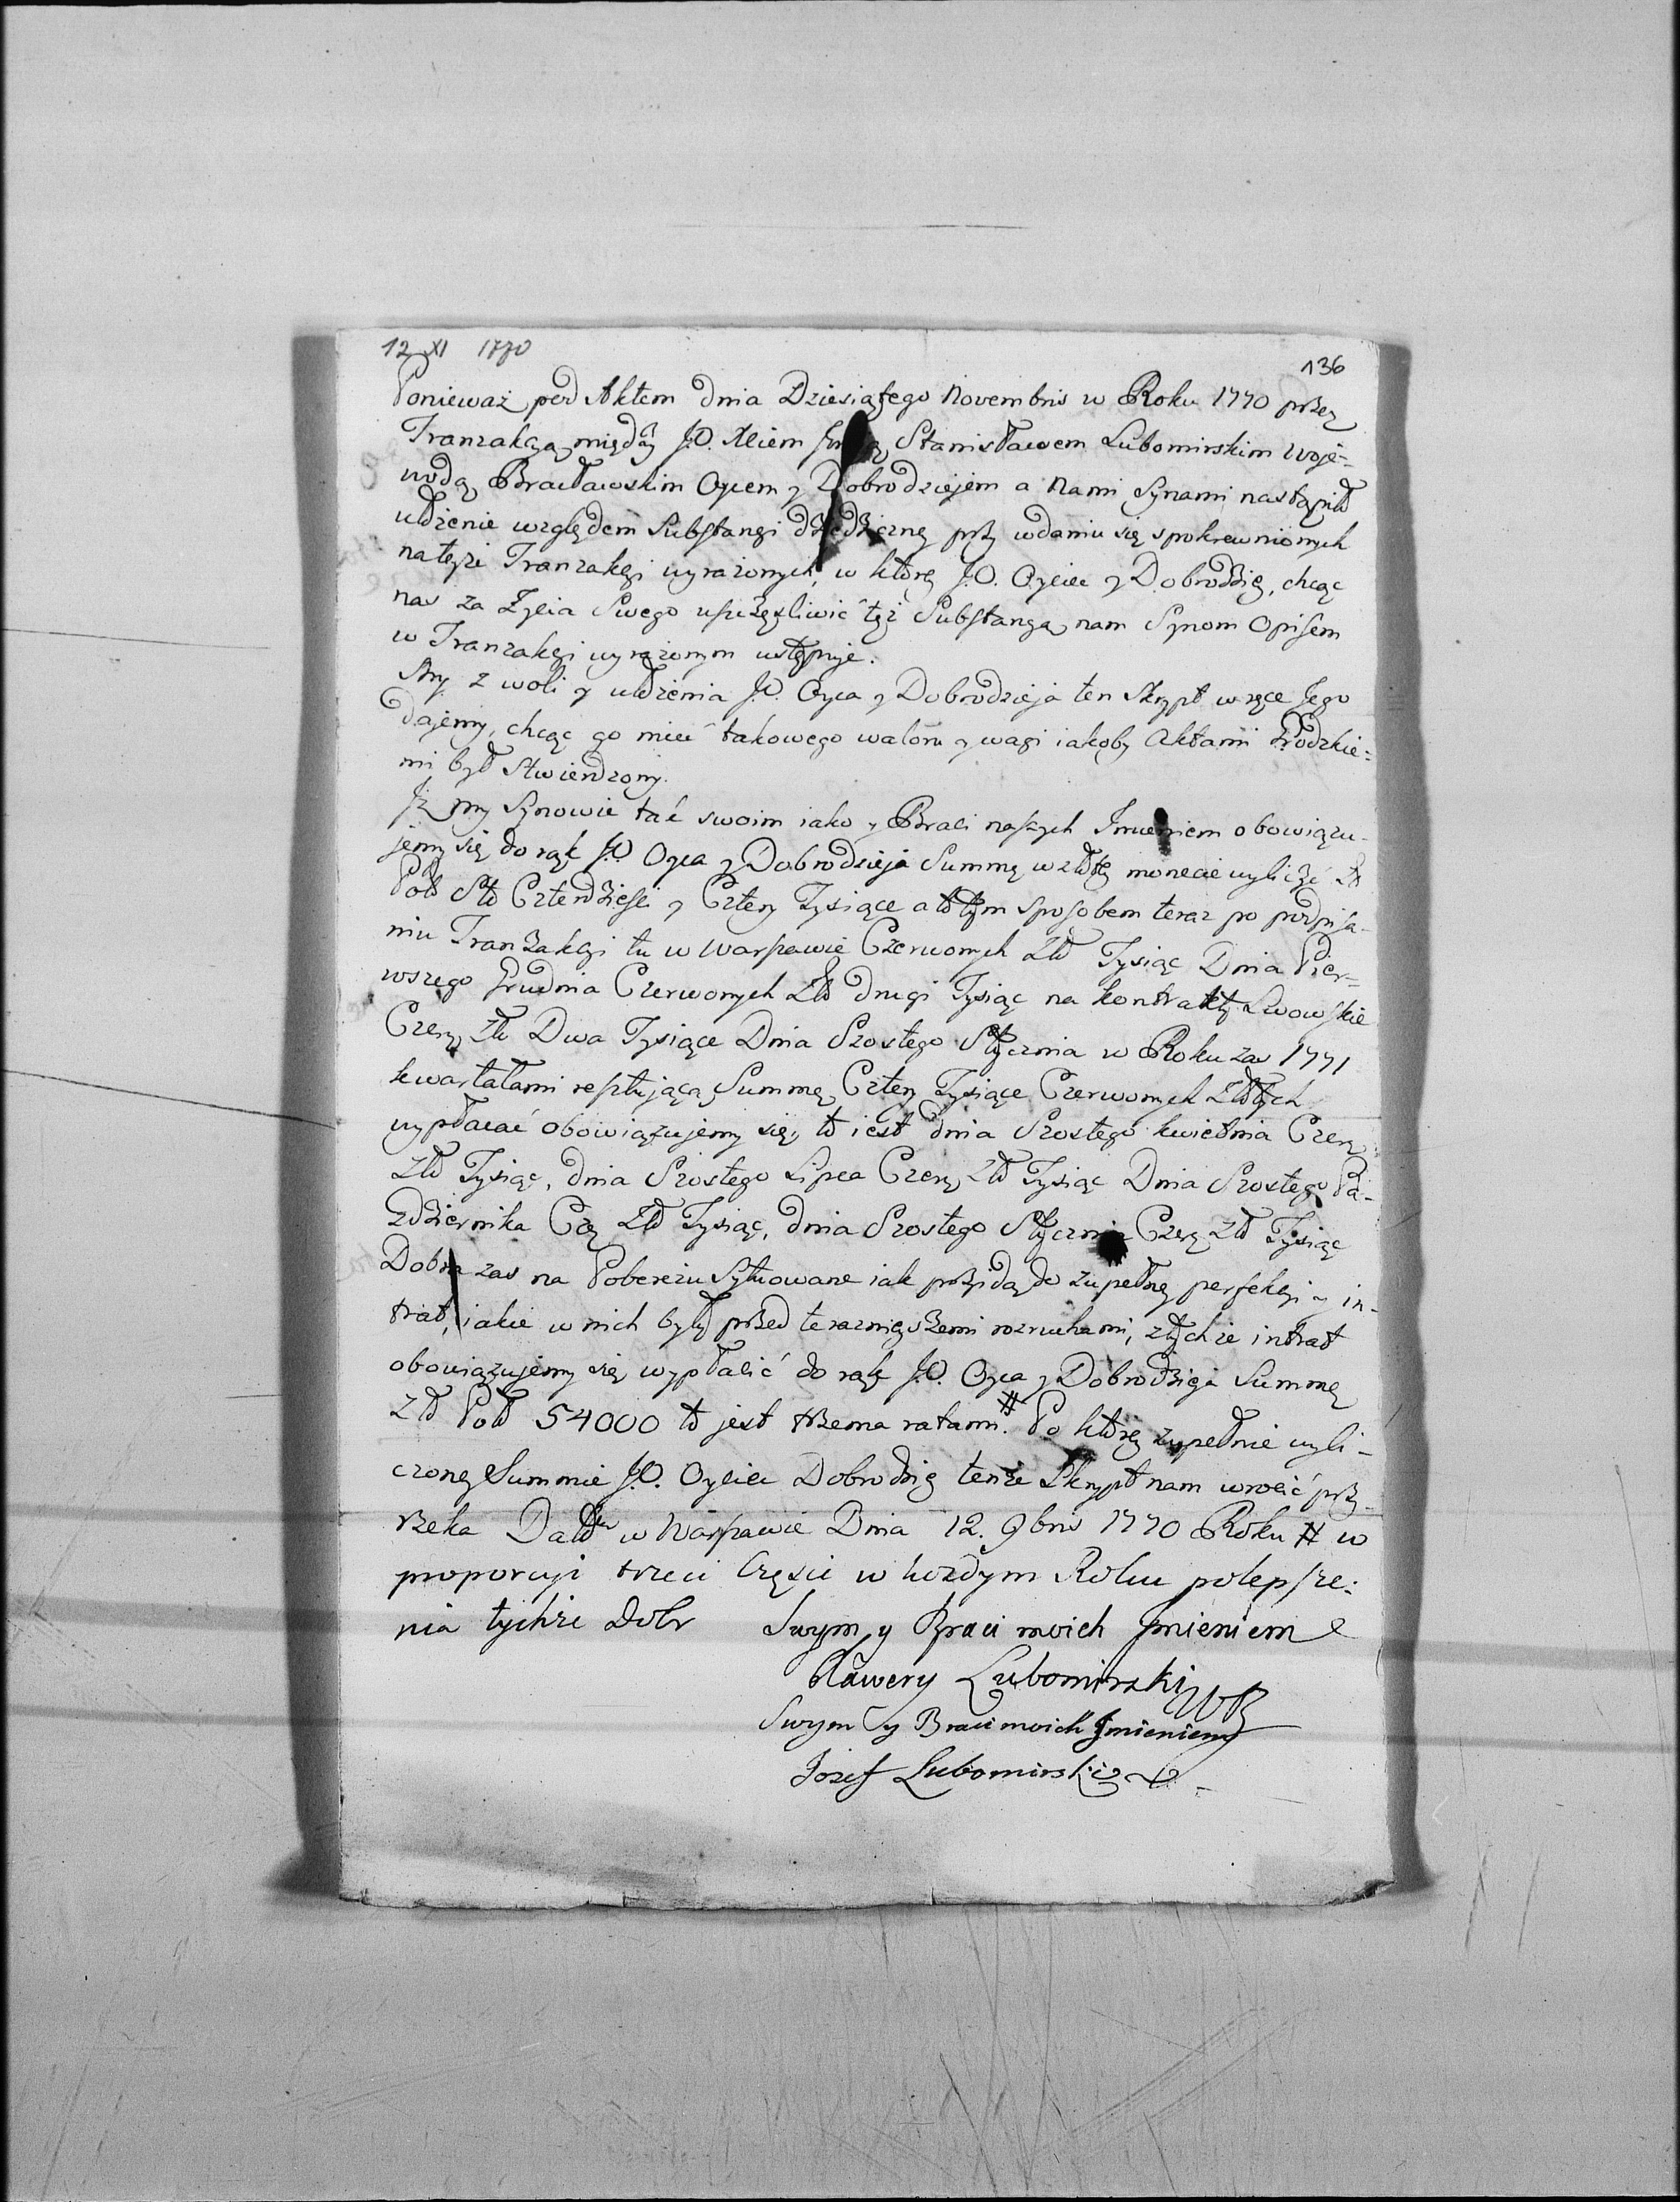 12 XI 1770
136
Ponieważ pod Aktem dnia Dziesiątego Novembris w Roku 1770 przez
Tranzakcyą między J.O. Xciem Stanisławem Lubomirskim Woje-
wodą Bracławskim Oycem y Dobrodziejem a Nami Synami nastąpiło
ułożenie względem Substancyi dziedziczney przy wdaniu się spokrewnionych
na teyże Tranzakcyi wyrażonych, w którey J.O. Oyciec y Dobrodziey, chcąc
nas za Zycia Swego uszczęsliwić tęż Substancyą nam Synom Opisem
w Tranzakcyi wyrażonym ustępuje.
My z woli y ułożenia J.O. Oyca y Dobrodzieja ten Skrypt w ręce Jego
dajemy, chcąc go mieć takowego waloru y wagi iakoby Aktami Grodzkie=
mi był stwierdzony.
Iż my Synowie tak swoim iako y Braci naszych Imieniem obowiązu-
jemy się do rąk J.O. Oyca y Dobrodzieja Summę w złotey monecie wyliczyć Zł
Pol Sto Czterdzieści y Cztery Tysiące a to tym sposobem teraz po podpisa-
niu Tranzakcyi tu w Warszawie Czerwonych Zło Tysiąc Dnia Pier=
wszego Grudnia Czerwonych Zło drugi Tysiąc na kontrakty Lwowskie
Czerw Zło Dwa Tysiące Dnia Szostego Stycznia w Roku zas 1771
kwartałami resztującą Summę Cztery Tysiące Czerwonych Złotych
wypłacać obowiązujemy się, to iest dnia Szostego kwietnia Czerw
Zło Tysiąc, dnia Szostego Lipca Czerw Zło Tysiąc Dnia Szostego Pa-
zdziernika Czer Zło Tysiąc, dnia Szostego Stycznia Czerw Zło Tysiąc
Dobra zas na Pobereżu sytuowane iak przyidą do zupełney perfekcyi y in-
trat, iakie w nich były przed teraznieyszemi rozruchami, z tychże intrat
obowiązujemy się wypłacić do rąk J.O. Oyca y Dobrodzieja Summę
Zło Pol 54000 to jest trzema ratami # Po którey zupełnie wyli-
czoney Summie J.O. Oyciec Dobrodziey tenże Skrypt nam wrocić przy-
rzeka Datt w Warszawie Dnia 12. 9bris 1770 Roku # w
proporcyi trzeci Części w każdym Roku polepsze:
nia tychże Dobr Swym y Braci moich Imieniem
Xawery Lubomirski
Swym y Braci moich Imieniem
Jozef Lubomirski